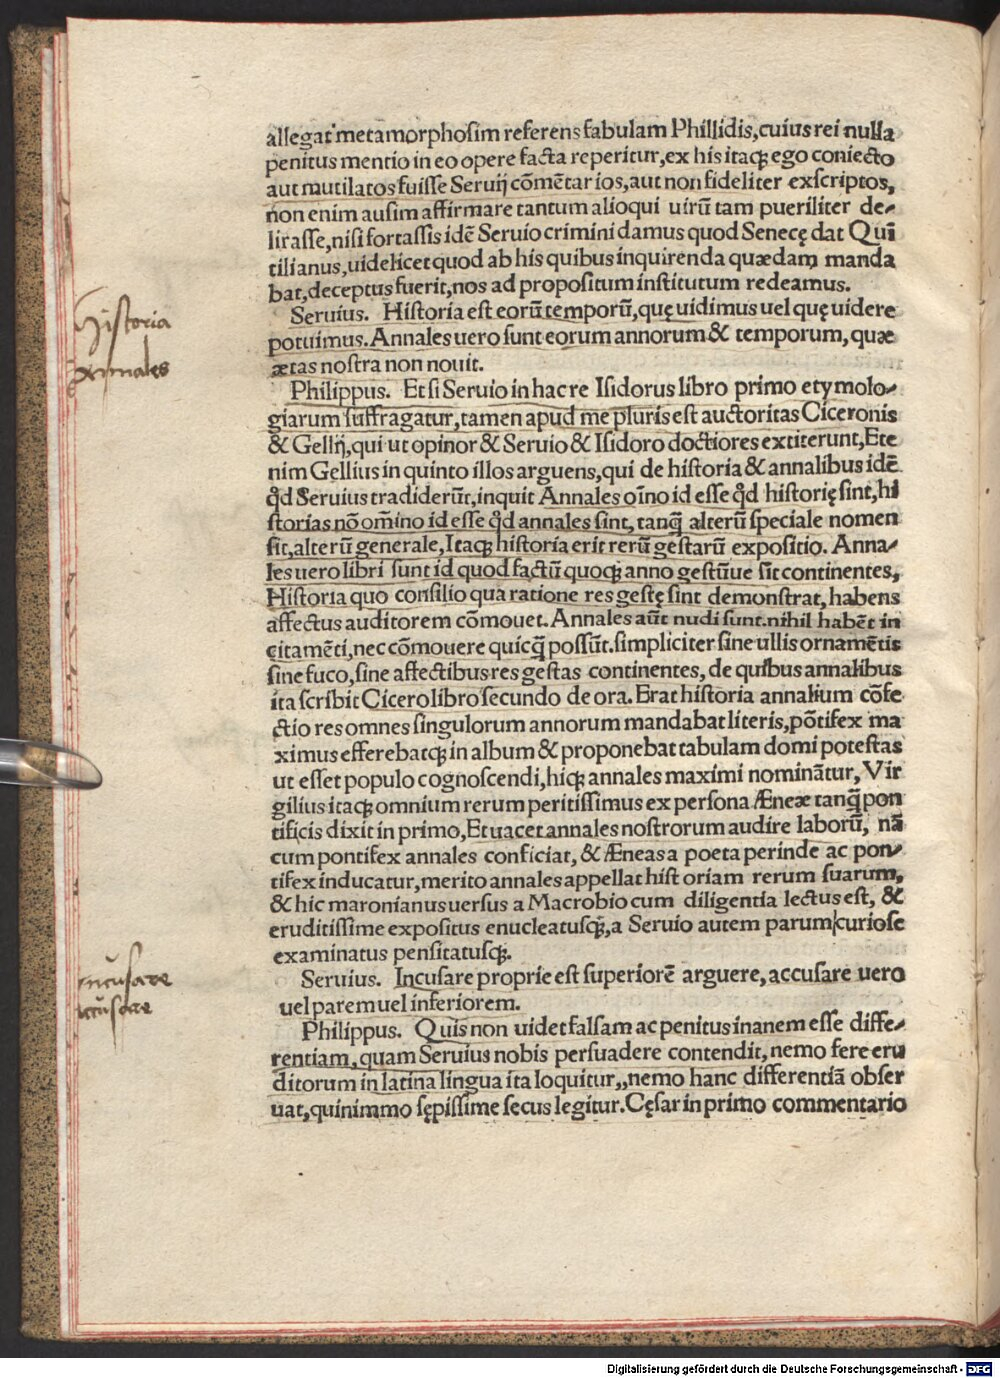 allegat metamorphosim referens fabulam Phillidis,cuius rei nulla
penitus mentio in eo opere facta reperitur,ex his itaqꝫ ego coniecto
aut mutilatos fuisse Seruij cõmẽtarios,aut non fideliter exscriptos,
non enim ausim affirmare tantum alioqui uirũ tam pueriliter de-
lirasse,nisi fortassis idẽ Seruio crimini damus quod Senecę dat Quĩ
tilianus,uidelicet quod ab his quibus inquirenda quædam manda
bat,deceptus fuerit,nos ad propositum institutum redeamus.
Seruius. Historia est eorũ temporũ,quę uidimus uel quę uidere
potuimus.Annales uero sunt eorum annorum & temporum, quæ
ætas nostra non nouit.
Historia
Annales
Philippus. Etsi Seruio in hac re Isidorus libro primo etymolo-
giarum suffragatur,tamen apud me pluris est auctoritas Ciceronis
& Gellij,qui ut opinor & Seruio & Isidoro doctiores extiterunt,Ete
nim Gellius in quinto illos arguens,qui de historia & annalibus idẽ
qđ Seruius tradiderũt,inquit Annales oĩno id esse qđ historię sint,hi
storias nõ om̃ino id esse qđ annales sint, tanq̃ alterũ speciale nomen
sit,alterũ generale,Itaqꝫ historia erit rerũ gestarũ expositio. Anna-
les uero libri sunt id quod factũ quoqꝫ anno gestũue sit continentes,
Historia quo consilio qua ratione res gestę sint demonstrat, habens
affectus auditorem cõmouet. Annales aũt nudi sunt.nihil habẽt in
citamẽti,nec cõmouere quicq̃ possũt.simpliciter sine ullis ornamẽtis
sine fuco,sine affectibus res gestas continentes, de quibus annalibus
ita scribit Cicero libro secundo de ora. Erat historia annalium cõfe
ctio res omnes singulorum annorum mandabat literis,põtifex ma
ximus efferebatqꝫ in album & proponebat tabulam domi potestas
ut esset populo cognoscendi,hiqꝫ annales maximi nominãtur, Vir
gilius itaqꝫ omnium rerum peritissimus ex persona Æneæ tanq̃ pon
tificis dixit in primo,Et uacet annales nostrorum audire laborũ, nã
cum pontifex annales conficiat, & Æneas a poeta perinde ac pon-
tifex inducatur,merito annales appellat hist oriam rerum suarum,
& hic maronianus uersus a Macrobio cum diligentia lectus est, &
eruditissime expositus enucleatusqꝫ,a Seruio autem parum curiose
examinatus pensitatusqꝫ.
Seruius. Incusare proprie est superiorẽ arguere, accusare uero
uel parem uel inferiorem.
incusare
accusare
Philippus. Quis non uidet falsam ac penitus inanem esse diffe-
rentiam,quam Seruius nobis persuadere contendit, nemo fere eru
ditorum in latina lingua ita loquitur,,nemo hanc differentiã obser
uat,quinimmo sępissime secus legitur.Cęsar in primo commentario
Digitalisierung gefördert durch die Deutsche Forschungsgemeinschaft - DFG